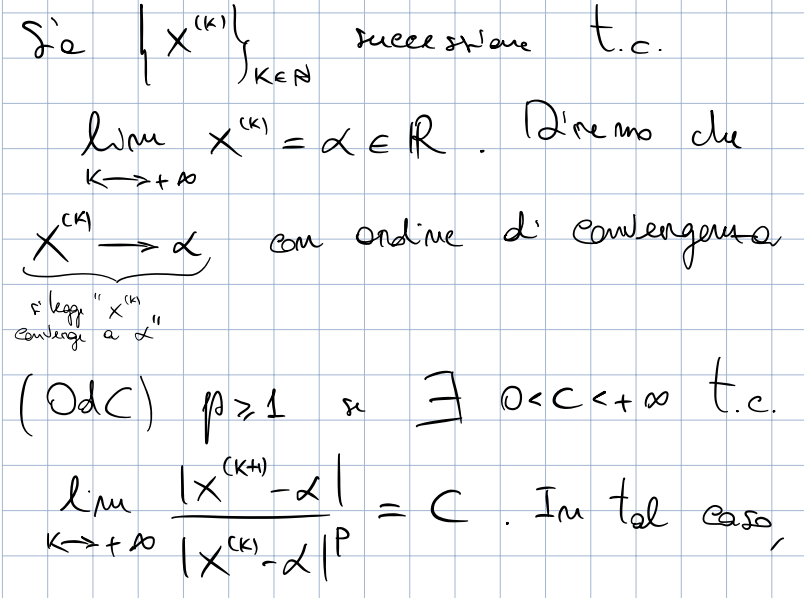 Sia {X^(K)}_{K∈ℕ} successione t.c.
lim_{K→+∞} X^(K) = α ∈ ℝ. Diremo che
X^(K) → α con ordine di convergenza
si legge "X^(K)
converge a α"
(OdC) p ≥ 1 se ∃ 0<C<+∞ t.c.
lim_{K→+∞} |X^(K+1) - α| / |X^(K) - α|^p = C. In tal caso,